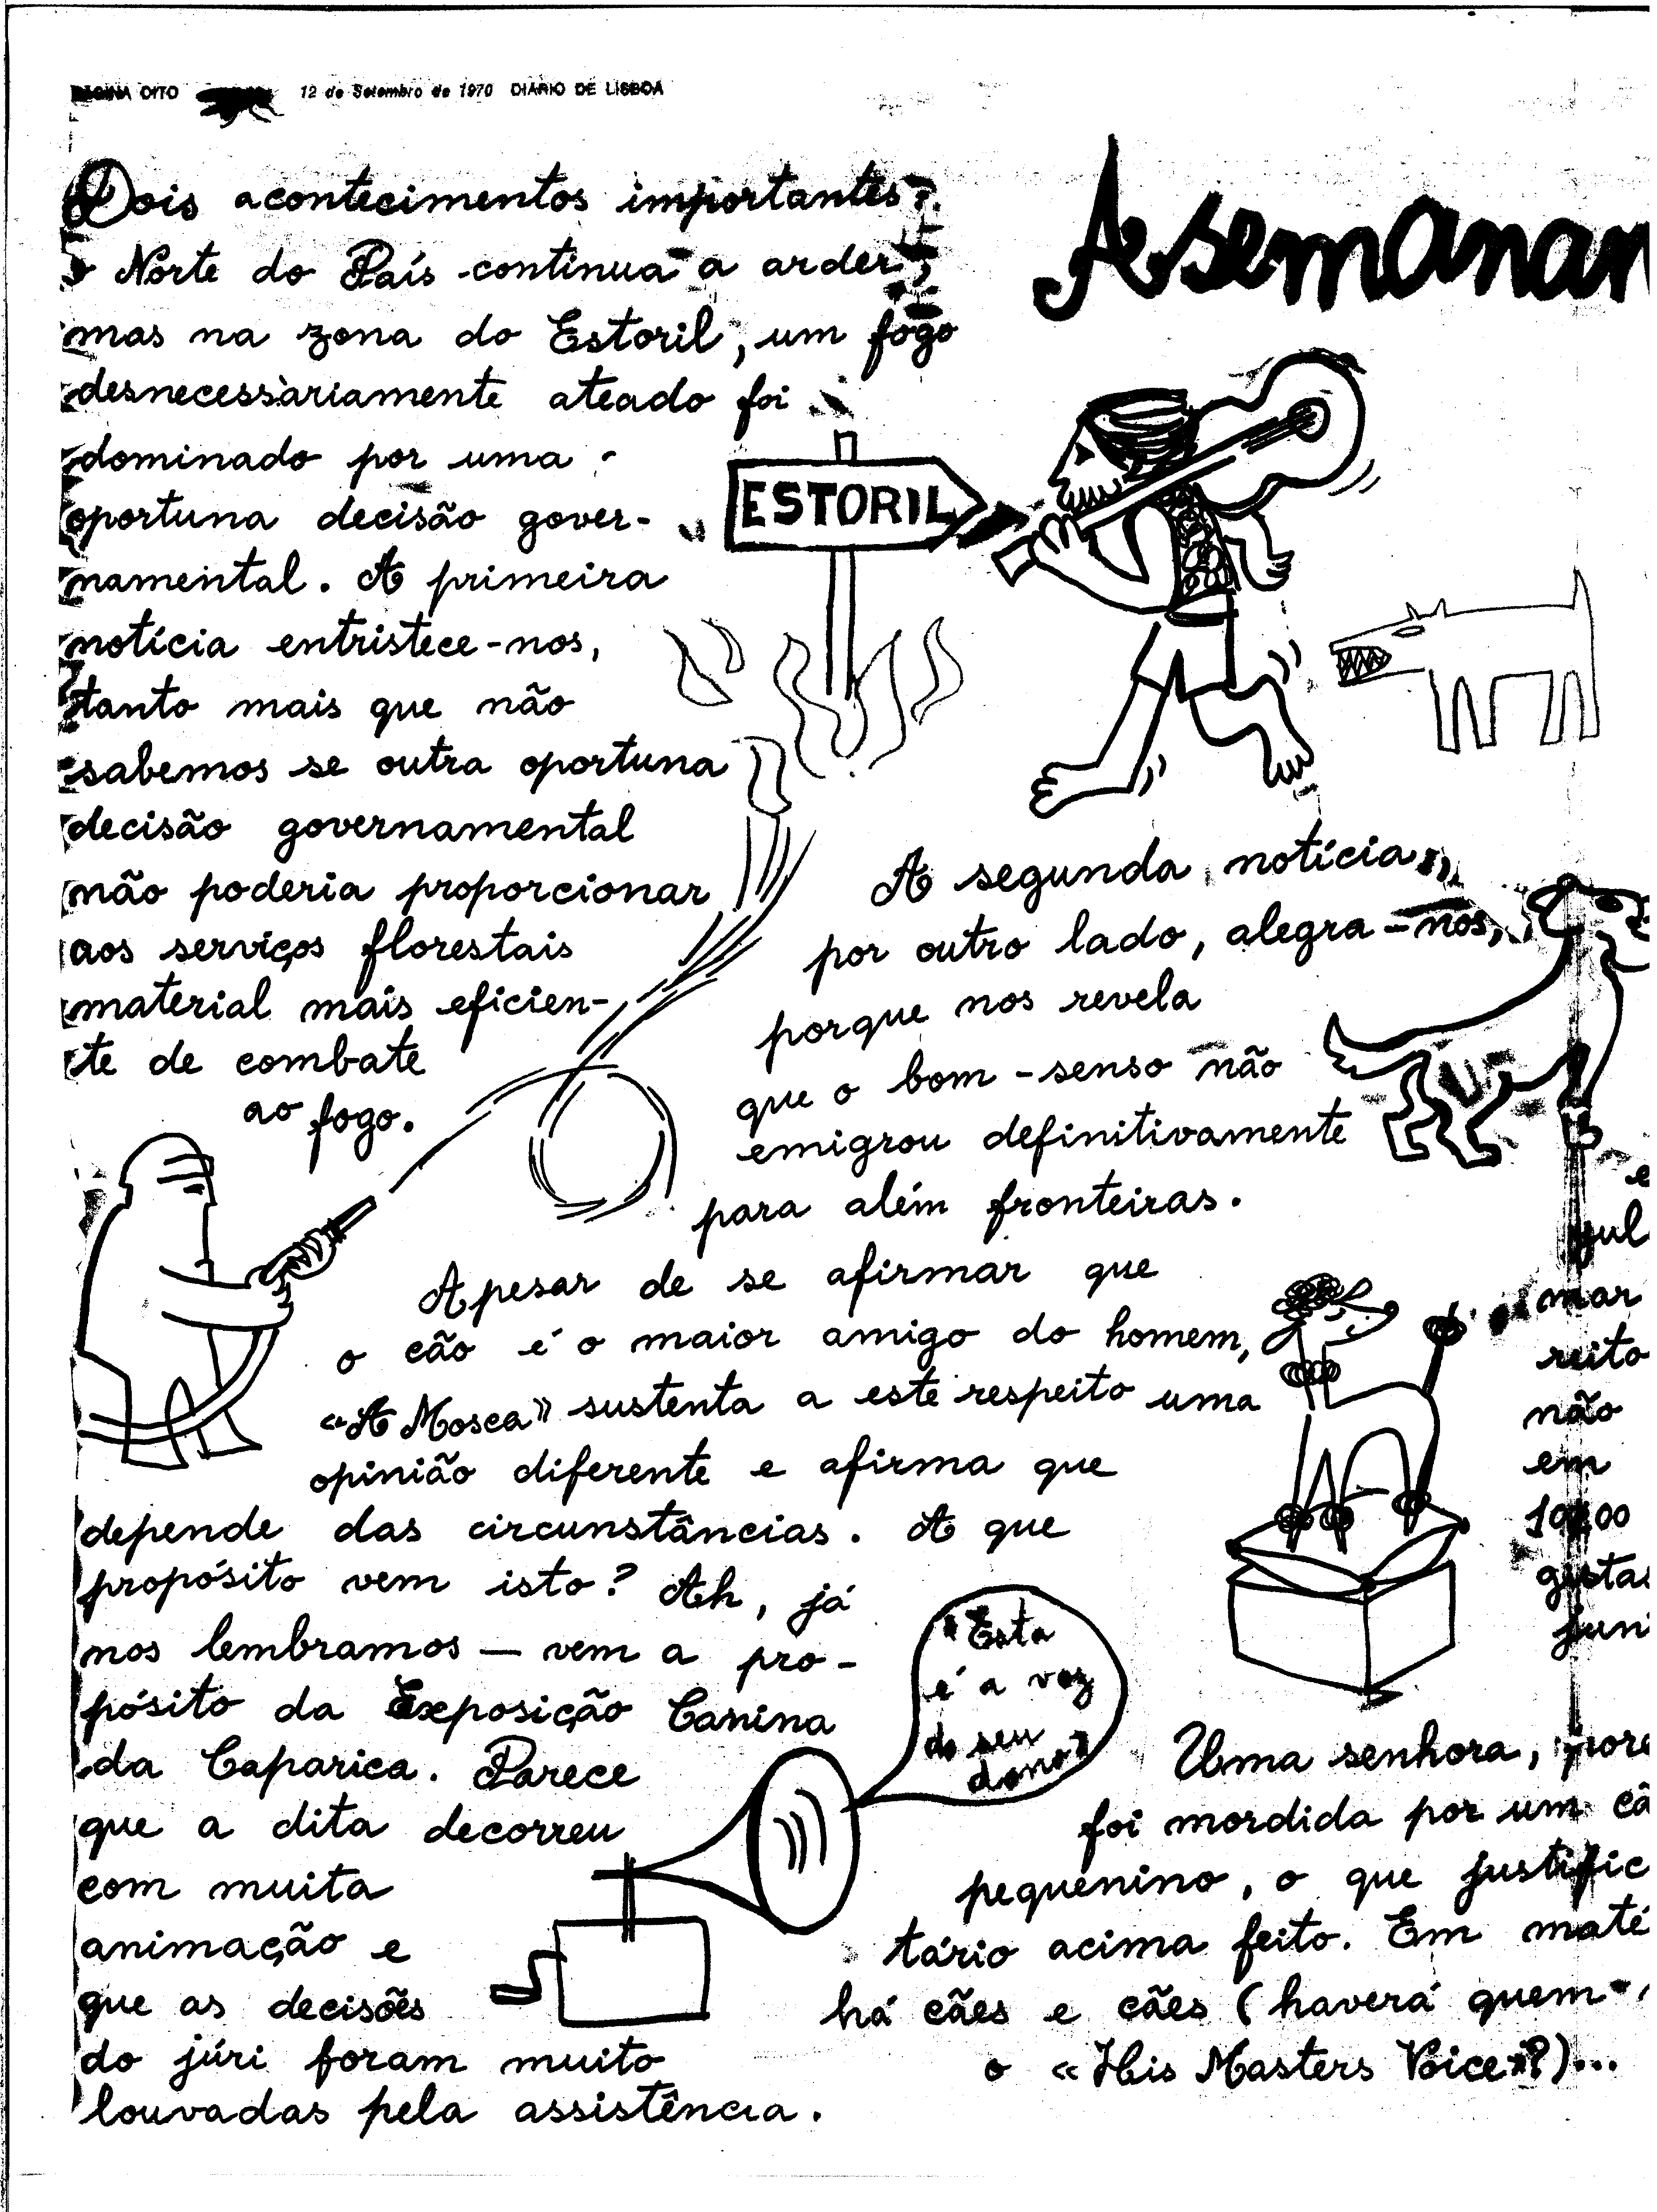 PÁGINA OITO 12 de Setembro de 1970 DIÁRIO DE LISBOA
A semana
Dois acontecimentos importantes:
o Norte do País continua a arder,
mas na zona do Estoril, um fogo
desnecessàriamente ateado foi
dominado por uma
oportuna decisão gover-
namental. A primeira
notícia entristece-nos,
tanto mais que não
sabemos se outra oportuna
decisão governamental
não poderia proporcionar
aos serviços florestais
material mais eficien-
te de combate
ao fogo.
ESTORIL
A segunda notícia,
por outro lado, alegra-nos,
porque nos revela
que o bom-senso não
emigrou definitivamente
para além fronteiras.
Apesar de se afirmar que
o cão é o maior amigo do homem,
«A Mosca» sustenta a este respeito uma
opinião diferente e afirma que
depende das circunstâncias. A que
propósito vem isto? Ah, já
nos lembramos — vem a pro-
pósito da Exposição Canina
da Caparica. Parece
que a dita decorreu
com muita
animação e
que as decisões
do júri foram muito
louvadas pela assistência.
"Esta
é a voz
do seu
dono"
e
jul
mar
reito
não
em
gusta
jun
Uma senhora, pore
foi mordida por um cã
pequenino, o que justific
tário acima feito. Em maté
há cães e cães (haverá quem
o «His Masters Voice»?)...